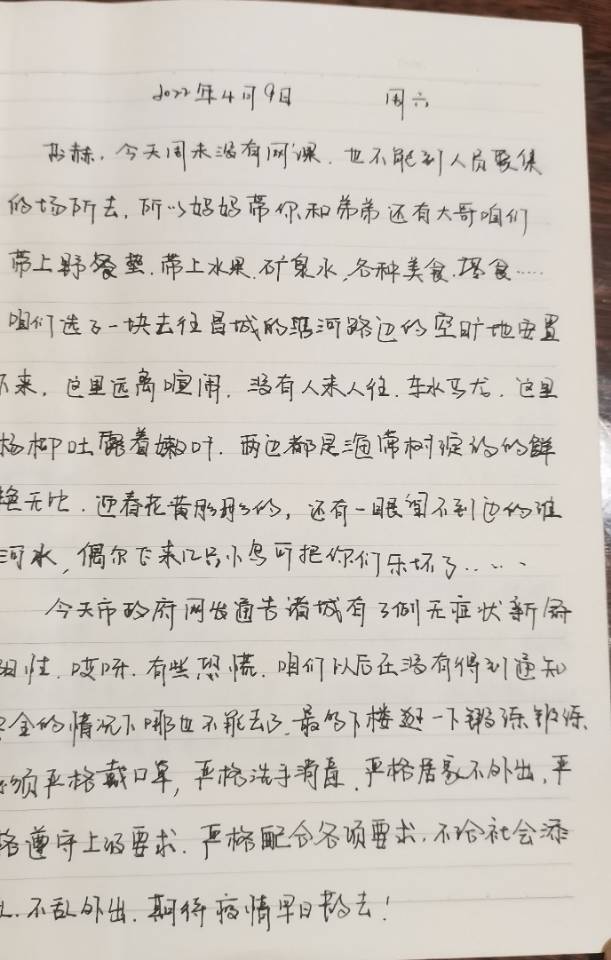 2022年4月9日 周六
赫,今天周末没有网课.也不能到人员聚集
的场所去,所以妈妈带你和弟弟还有大哥咱们
带上野餐垫.带上水果.矿泉水,各种美食.零食……
咱们选了一块去往昌城的路河路边的空旷地安置
下来,这里远离喧闹.没有人来人往.车水马龙.这里
杨柳吐露着嫩叶.两边都是海棠树绽放的鲜
艳无比.迎春花黄彤彤的,还有一眼望不到边的潍
河水,偶尔飞来几只小鸟可把你们乐坏了……
今天市政府网发通告诸城有3例无症状新冠
阳性.哎呀.有些恐慌.咱们以后在没有得到通知
安全的情况下哪也不能去了.最多下楼逛一下锻练锻练
必须严格戴口罩,严格洗手消毒.严格居家不外出,严
格遵守上级要求.严格配合各项要求.不给社会添
乱.不乱外出.期待疫情早日散去!